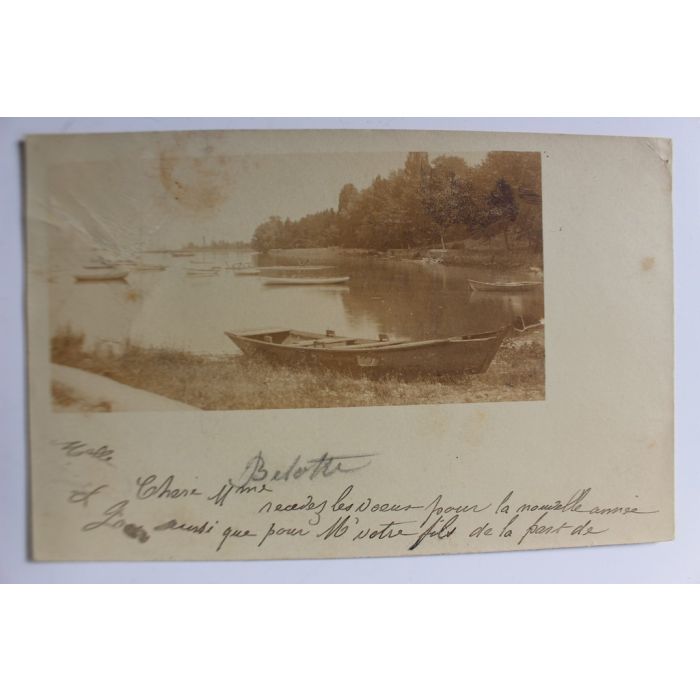 Belotte
Chere Mme
recevez les voeux pour la nouvelle année
aussi que pour Mr votre fils de la part de
Melle